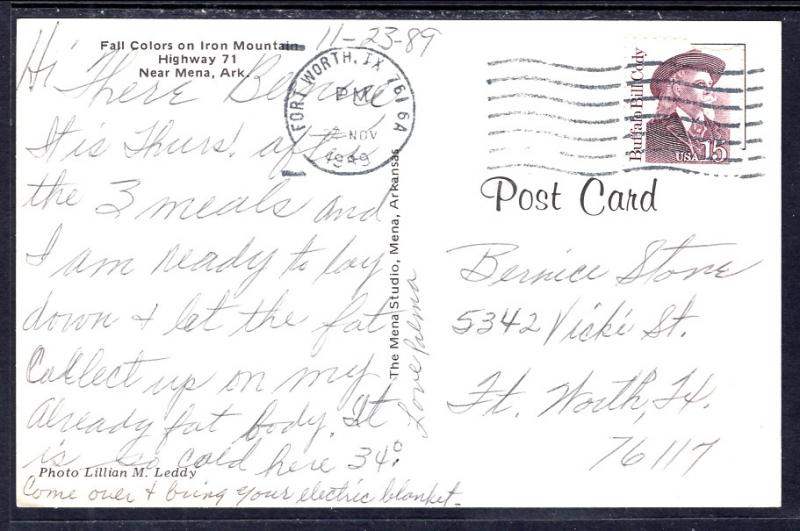 11-23-89
Fall Colors on Iron Mountain
Highway 71
Near Mena, Ark.
Hi There Bernice
It is Thurs. aft
the 3 meals and
I am ready to lay
down + let the fat
Collect up on my
Already fat body. It
is so cold here 34°.
Photo Lillian M. Leddy
Come over + bring your electric blanket.
Love
The Mena Studio, Mena, Arkansas
FORT WORTH, TX 761 6A
PM
NOV
1949
Buffalo Bill Cody
USA 15
Post Card
Bernice Stone
5342 Vicki St.
Ft. Worth, Tx.
76117